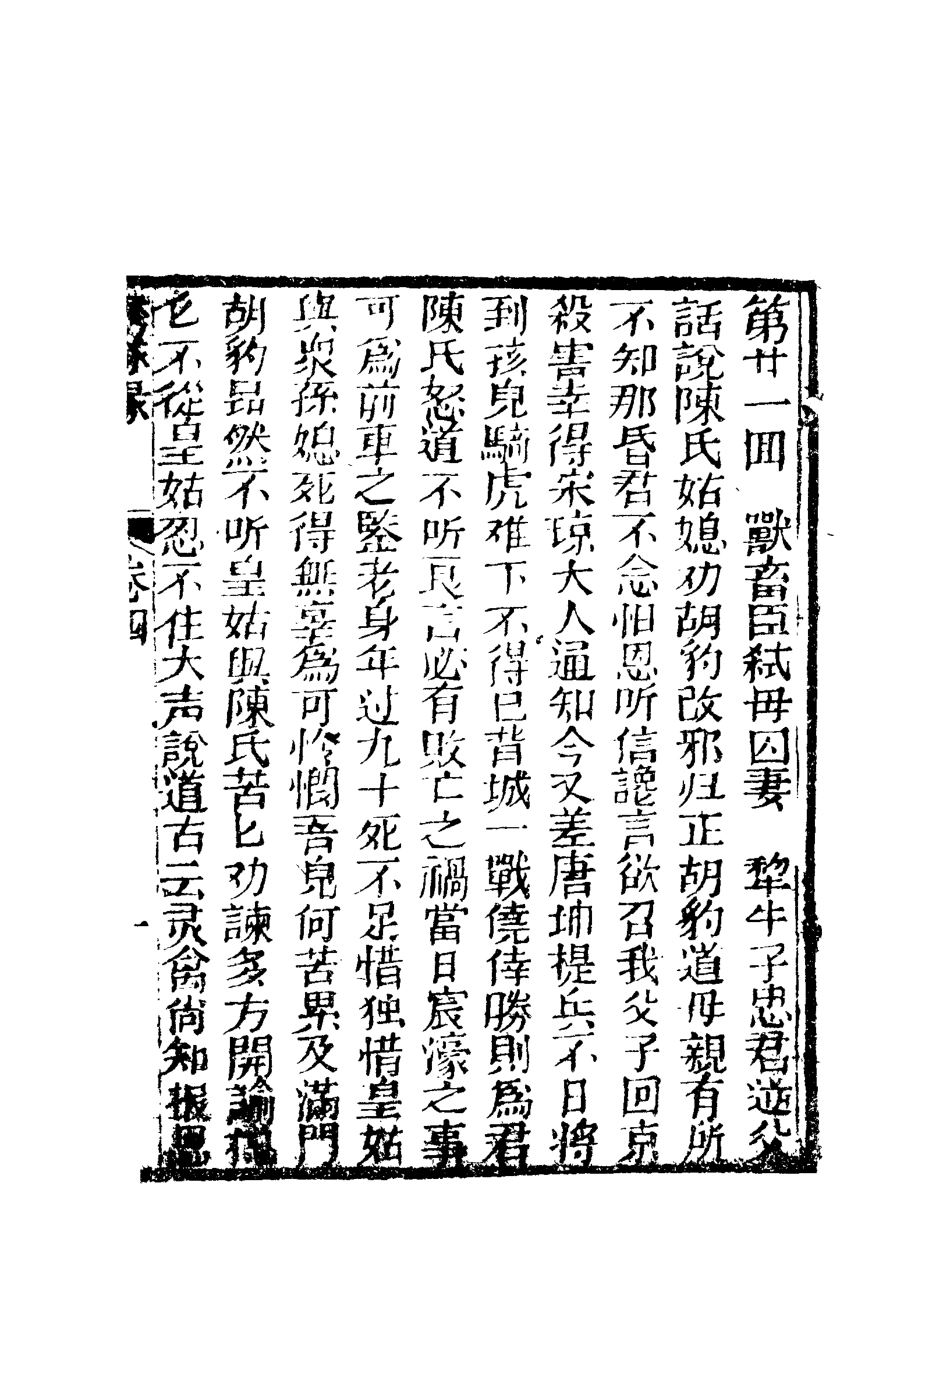 第廿一回　獸畜臣弑母囚妻　犂牛子忠君逆父
話說陳氏姑媳劝胡豹改邪归正胡豹道母親有所
不知那昏君不念旧恩听信讒言欲召我父子回京
殺害幸得宋琼大人通知今又差唐坤提兵不日将
到孩兒騎虎难下不得已背城一戰僥倖勝則爲君
陳氏怒道不听良言必有敗亡之禍當日宸濠之事
可爲前車之鑒老身年过九十死不足惜独惜皇姑
與衆孫媳死得無辜爲可怜憫吾兒何苦累及滿門
胡豹昂然不听皇姑與陳氏苦匕劝諫多方開諭
匕不從皇姑忍不住大声說道古云灵禽尚知报恩
卷四
一